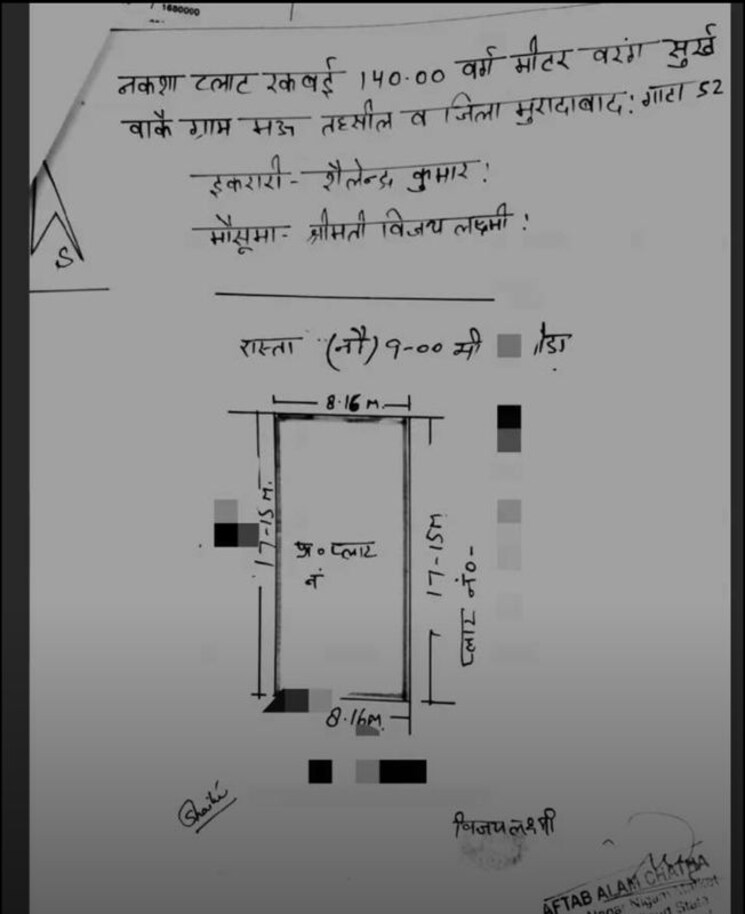 1680000
नकशा प्लाट रकबई 140.00 वर्ग मीटर बरंग सुर्ख
वाकै ग्राम मऊ तहसील व जिला मुरादाबाद: गाटा 52
इकरारी- शैलेन्द्र कुमार:
मौसूमा- श्रीमती विजय लक्ष्मी:
S
रास्ता (नौ) 9-00 मी
8.16 M.
17-15 M.
प्लाट
नं
17-15M
प्लाट नं०-
8.16M.
विजयलक्ष्मी
AFTAB ALAM